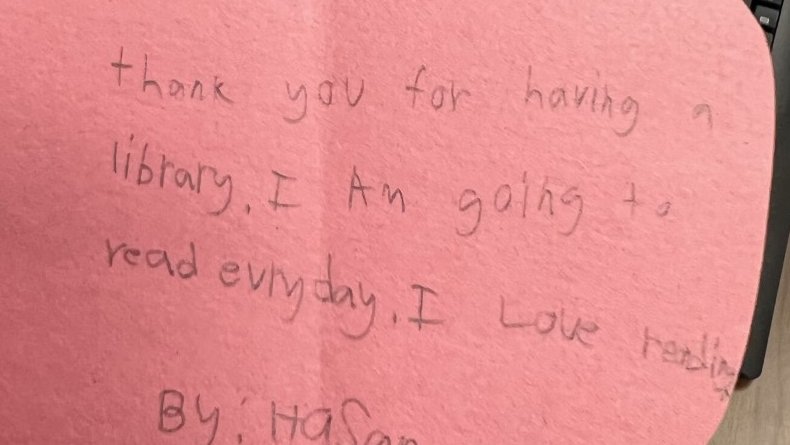 thank you for having a
library. I Am going to
read evryday. I Love reading
By: HaSan